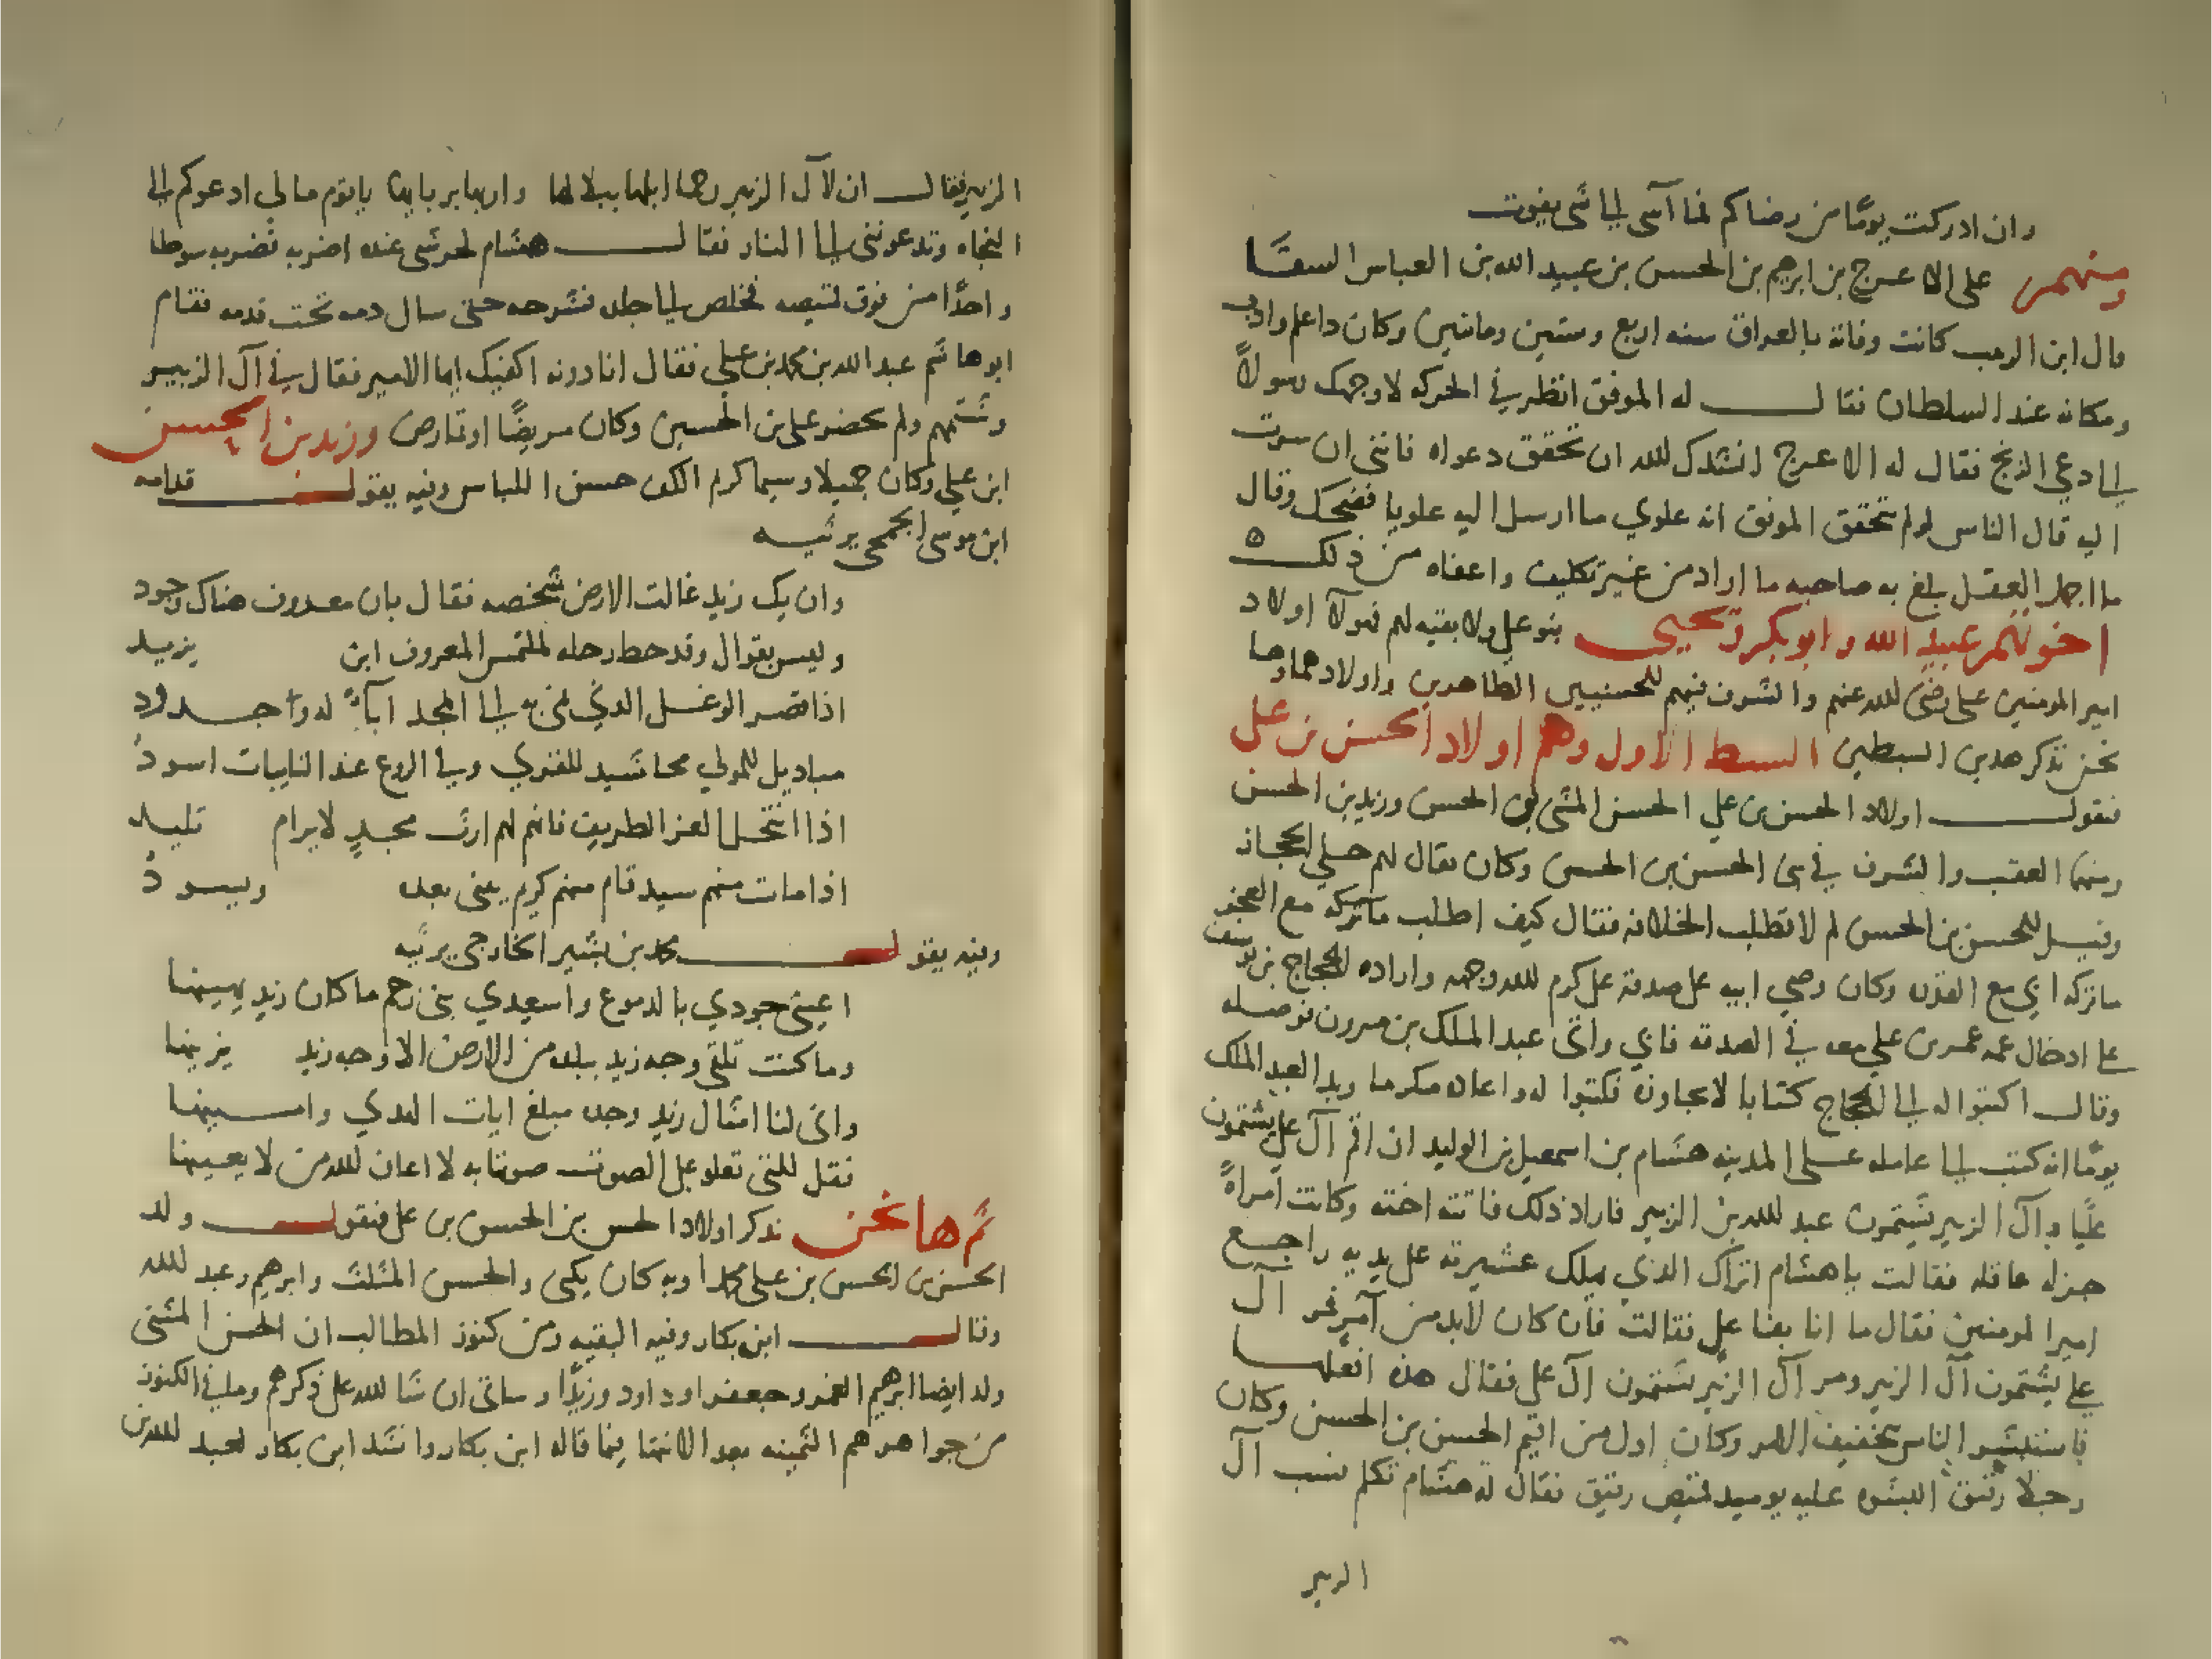 وان ادركت يومًا من رضاكم لما آسى الى شي يفوت
ومنهم على الاعرج بن ابرهيم بن الحسن بن عبيد الله بن العباس السقا
قال ابن كانت وفاته بالعراق سنه اربع وستين ومائتين وكان ذا علم وادب
ومكانه عند السلطان فقال له الموفق انظر في الحركه لاوجهك رسولاً
الى ادعي الزنج فقال له الاعرج انشدك لله ان تحقق دعواه فانني ان سرت
اليه قال الناس لو لم يتحقق الموفق انه علوي ما ارسل اليه علويا فضحك وقال
ما اجل العقل بلغ به صاحبه ما اراد من غير تكليف واعفاه من ذلك ه
اخوتهم عبيد الله وابو بكر ويحيى بنو علي ولا بقيه لهم فهولآ اولاد
امير المومنين على رضي لله عنهم والشرف فيهم للحسنيين الطاهرين واولادهما وها
نحن نذكر هدين السبطين السبط الاول وهم اولاد الحسن بن على
فنقول اولاد الحسن بن علي الحسن المثنى بن الحسن وزيد بن الحسن
ومنهما العقب والشرف في بنى الحسن بن الحسن وكان يقال لهم حلي الحجاز
وقيل للحسن بن الحسن لم لا تطلب الخلافه فقال كيف اطلب ماتركه مع العجز
ماتركه ابي مع القدره وكان وصي ابيه على صدقة على كرم لله وجهه واراده الحجاج بن يوسف
على ادخال عمه عمر بن علي معه في الصدقه فابي واتى عبد الملك بن مرون فوصله
وقال اكتبوا له الى الحجاج كتابا لا يجاوزه فكتبوا له واعاده مكرما وبدا لعبد الملك
يومًا انه كتب الى عامله على المدينه هشام بن اسمعيل بن الوليد ان اقم آل على يشتمون
عليًا وآل الزبير يشتمون عبد لله بن الزبير فاراد ذلك فاتته اخته وكانت امراةً
جزله عاقله فقالت ياهشام اتراك الذي يهلك عشيرته على يديه راجع
امير المومنين فقال ما انا بفاعل فقالت فان كان لابد من آمر فمر آل
علي يشتمون آل الزبير ومر آل الزبير يشتمون آل على فقال هذه افعلها
فاستبشر الناس بتخفيف الامر وكان اول من اقيم الحسن بن الحسن وكان
رجلا رقيق البشره عليه يوميد قميص رقيق فقال له هشام تكلم بسب آل
الزبير
الزبير فقال ان لآل الزبير رحما ابلها ببلالها واربها بربابها ياقوم مالي ادعوكم الى
النجاه وتدعونني الى النار فقال هشام لحرسى عنده اضربه فضربه سوطا
واحدًا من فوق قميصه فخلص الى جلده فشرحه حتى سال دمه تحت قدمه فقام
ابو هاشم عبد الله بن محمد بن علي فقال انا دونه اكفيك ايها الامير فقال في آل الزبير
وشتمهم ولم يحضر على بن الحسين وكان مريضًا او تمارض وزيد بن الحسن
ابن علي وكان جميلا وسيما كرم الكف حسن اللباس وفيه يقول قدامه
ابن موسى الجمحي يرثيه
وان يك زيد غالت الارض شخصه فقال بان معروف هناك وجود
وليس بقوال وقد حط رحله لملتمس المعروف اين يزيد
اذا قصر الوغل الدني نمى به الى المجد آباءٌ له وجدود
مباديل للمولي محاشيد للقري وفي الروع عند النايبات اسود
اذا انتحل العز الطريف فانهم لهم ارث مجدٍ لا يرام تليد
اذا مات منهم سيد قام منهم كريم يبنى بعده ويسود
وفيه يقول محمد بن بشير الخارجي يرثيه
اعينى جودي بالدموع واسعدي بني رحم ما كان زيد يهينها
وما كنت تلقى وجه زيد ببلده من الارض الا وجه زيد يزينها
واني لنا امثال زيد وجده مبلغ ايات الهدي وامينها
فقل للتى تعلو على الصوت صوتا به لا اعان لله من لا يعينها
ثم ها نحن نذكر اولاد الحسن بن الحسن بن على فنقول ولد
الحسن بن الحسن بن على محمدا وبه كان يكنى والحسن المثلث وابرهيم وعبد لله
وقال ابن بكار وفيه البقيه ومن كنوز المطالب ان الحسن المثنى
ولد ايضا ابرهيم الغمر وجعفر او داود وزيدًا وساتى ان شا لله على ذكرهم وما في الكنوز
من جواهرهم الثمينه بعد الانتها فيما قاله ابن بكار وانشد ابن بكار لعبد لله بن